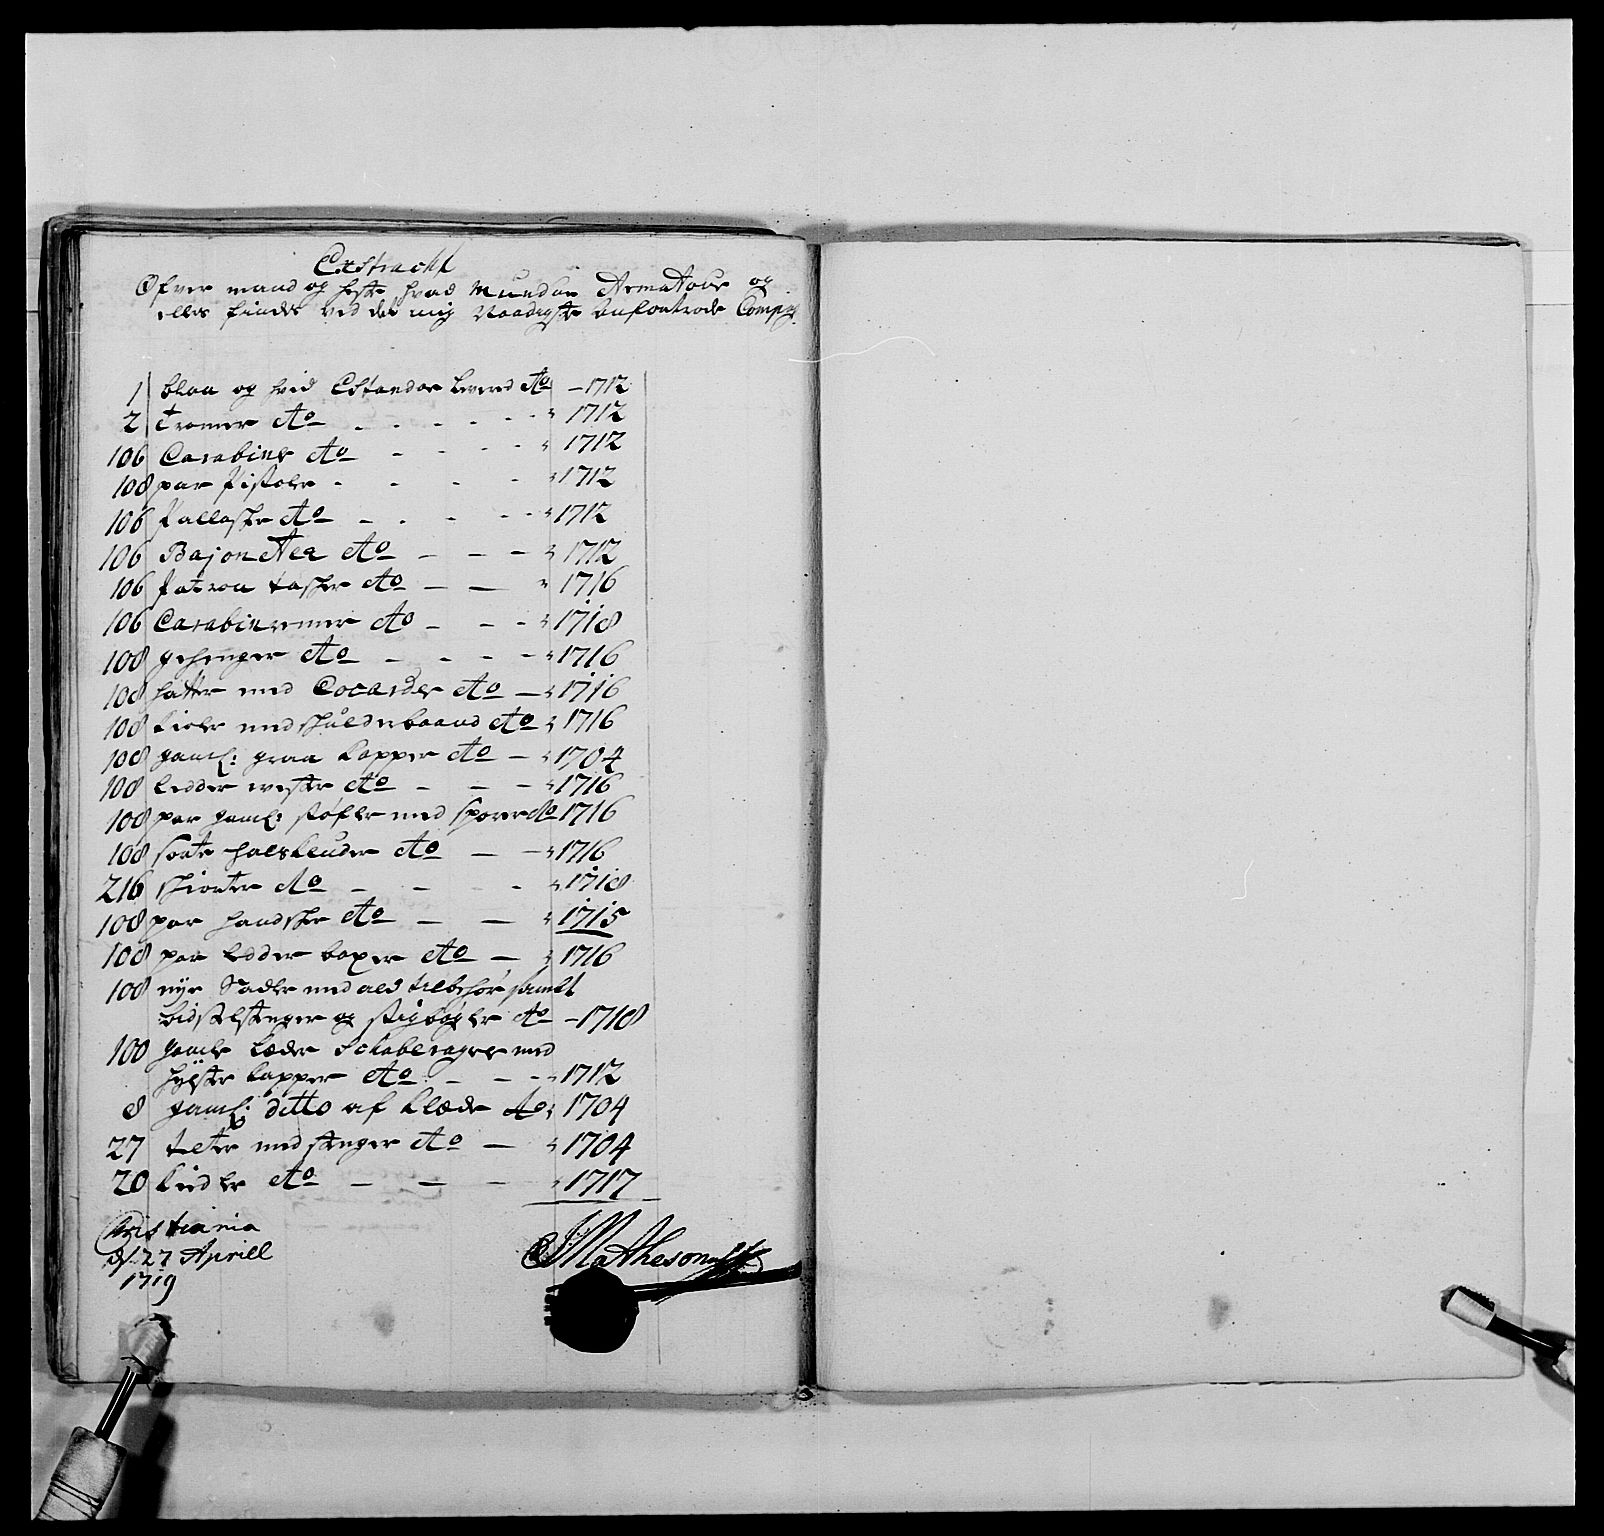 Extracht
Ofver mand og heste hvad Mundur Armatour og
elles findes ved det mig Naadigste Anfortrode Comp:
1 blaa og hvid Estandar levered Ao - 1712
2 Tromer Ao - - - - - 1712
106 Carabiner Ao - - - - 1712
108 par Pistoler - - - - 1712
106 Pallasker Ao - - - - 1712
106 Bajonetter Ao - - - 1712
106 Patron tasker Ao - - 1716
106 Carabinremer Ao - - - 1718
108 gehenger Ao - - - - 1716
108 hatter med Cocarder Ao - 1716
108 kioler med skulderbaand Ao 1716
108 gaml: graa kapper Ao - 1704
108 ledder vester Ao - - - 1716
108 par gaml: støfler med sporer Ao 1716
108 sorte halskluder Ao - - 1716
216 skiorter Ao - - - - 1718
108 par handsker Ao - - 1715
108 par ledder boxer Ao - 1716
108 nye Sadler med ald tilbehør samt
bidselstenger og stigbøgler Ao - 1718
100 gamle læder Schaberager med
hylster kapper Ao - - - 1712
8 gaml: ditto af klæde Ao 1704
27 telter med stenger Ao - 1704
20 kiedler Ao - - - - 1717
Cristiania
d: 27 Aprill
1719
J Matheson